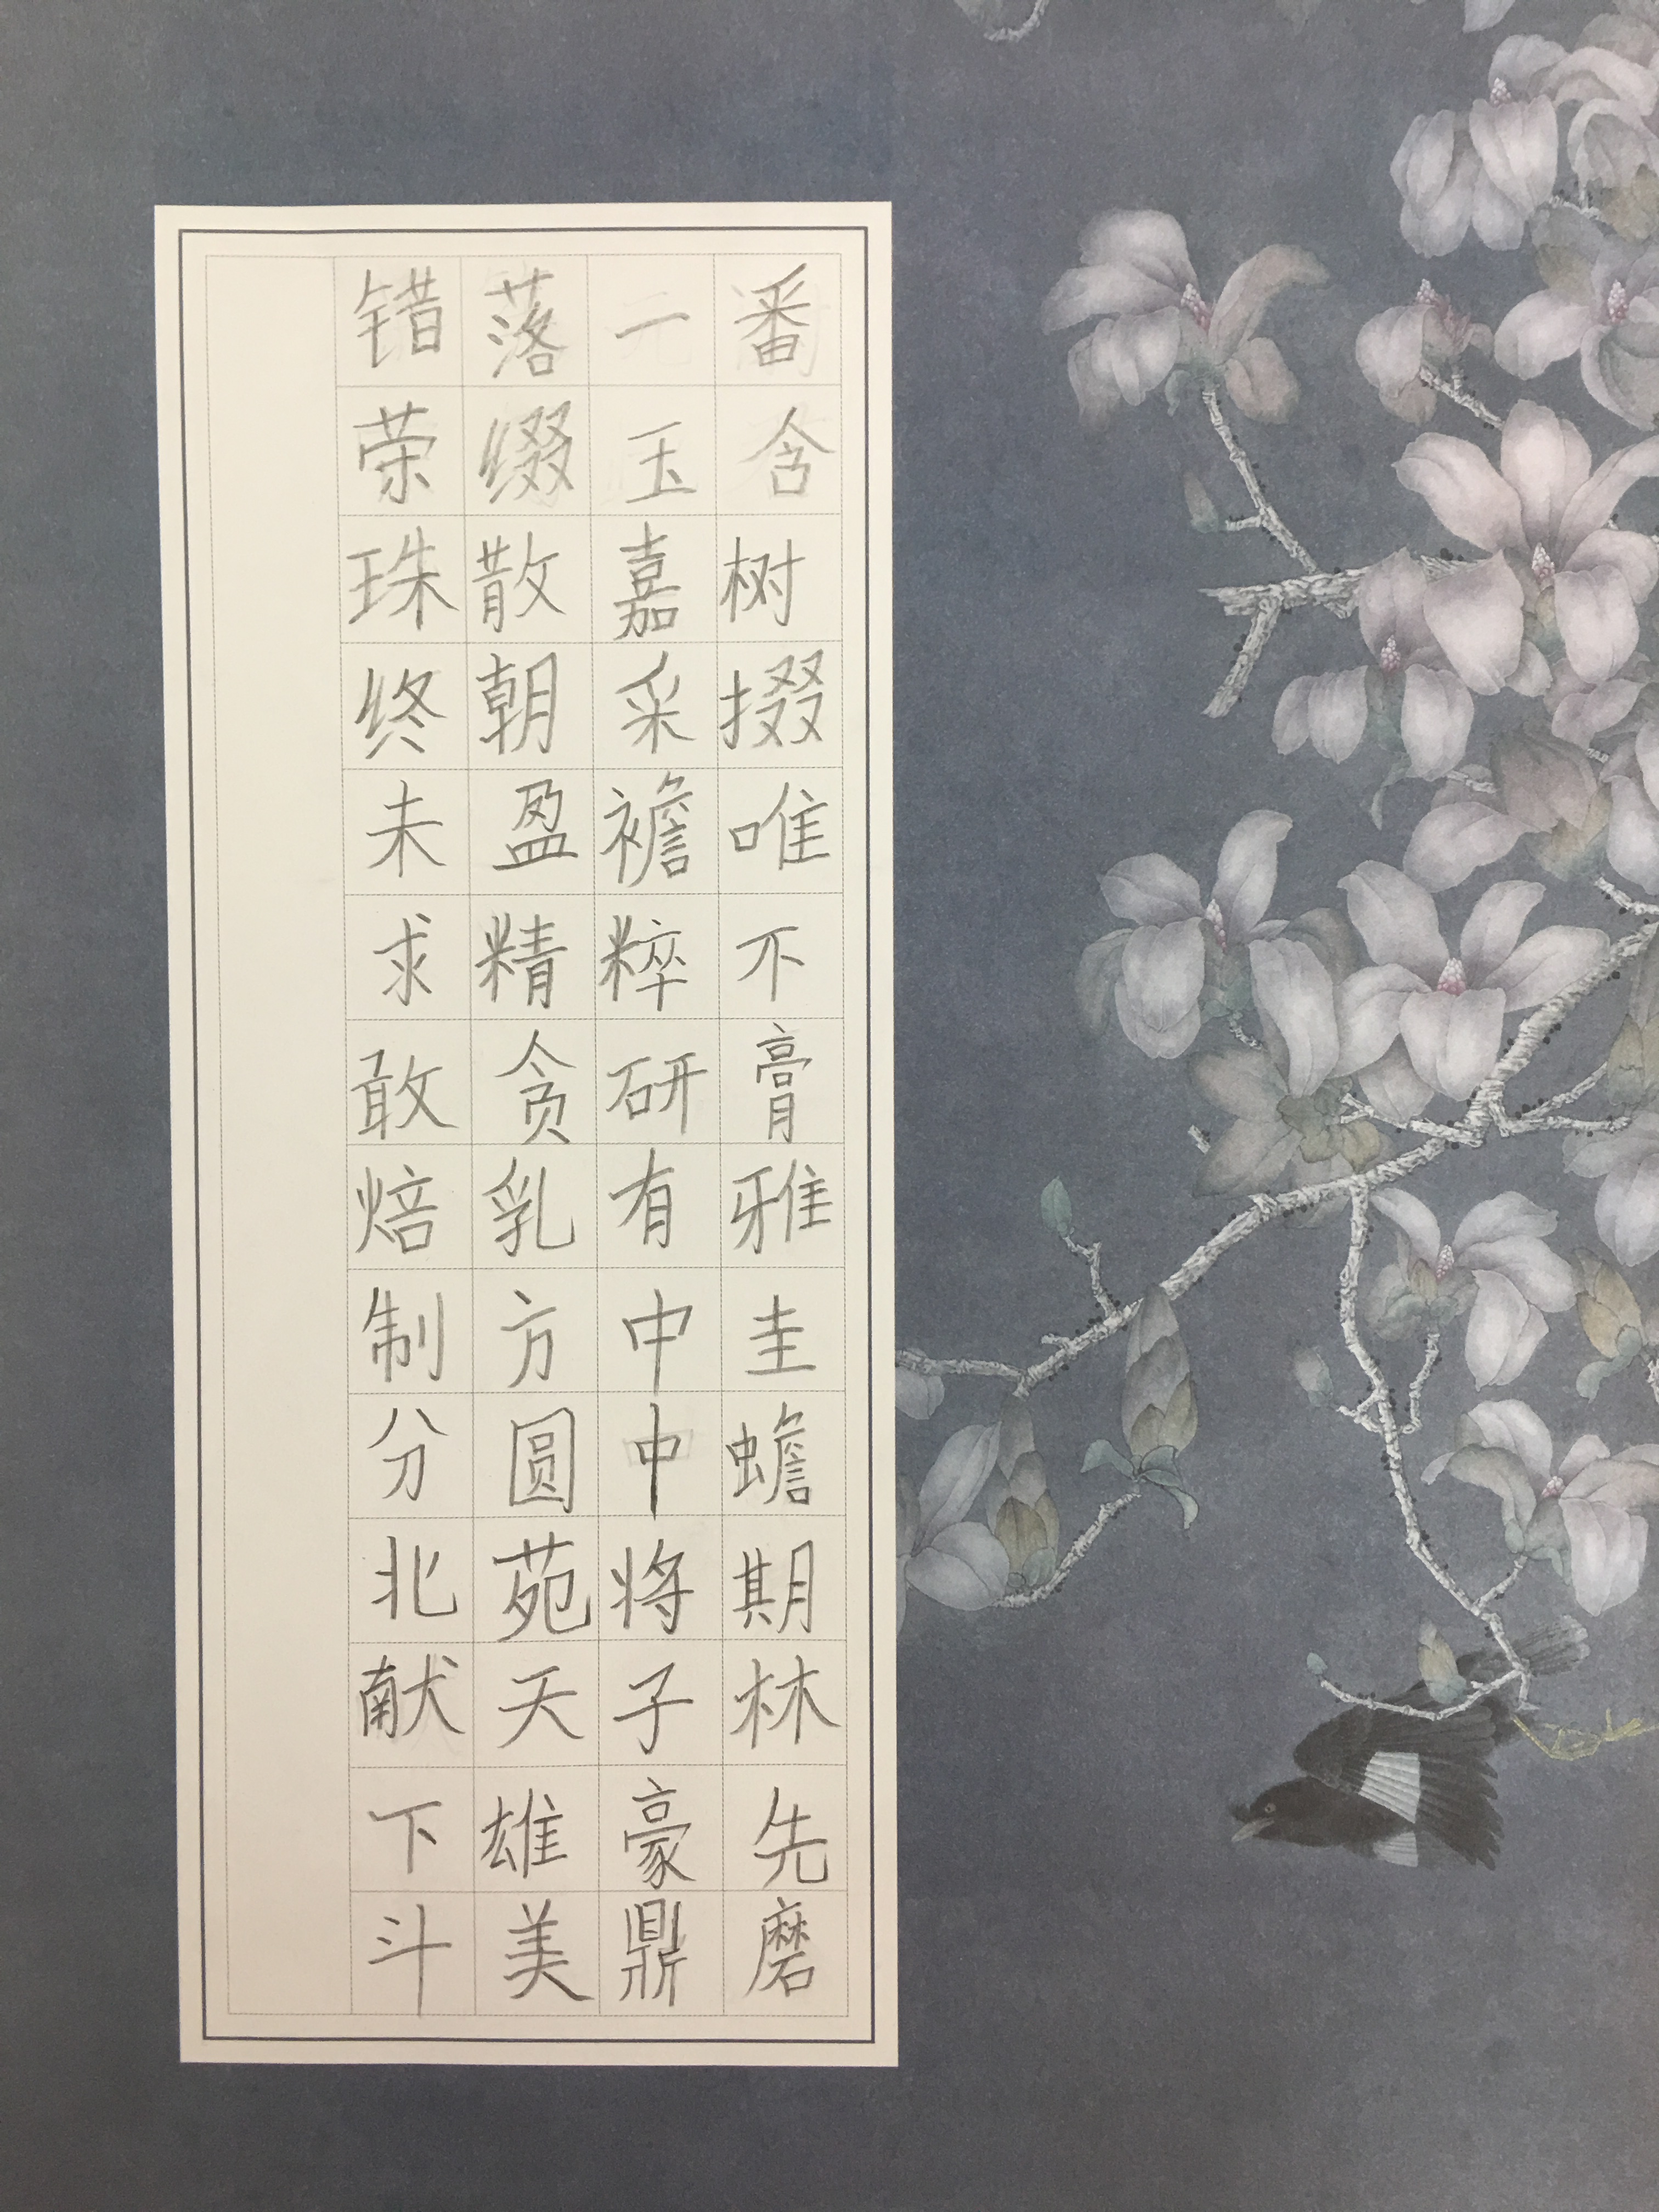 错落一番
荣缀玉含
珠散嘉树
终朝采掇
未盈襜唯
求精粹不
敢贪研膏
焙乳有雅
制方中圭
分圆中蟾
北苑将期
献天子林
下雄豪先
斗美鼎磨